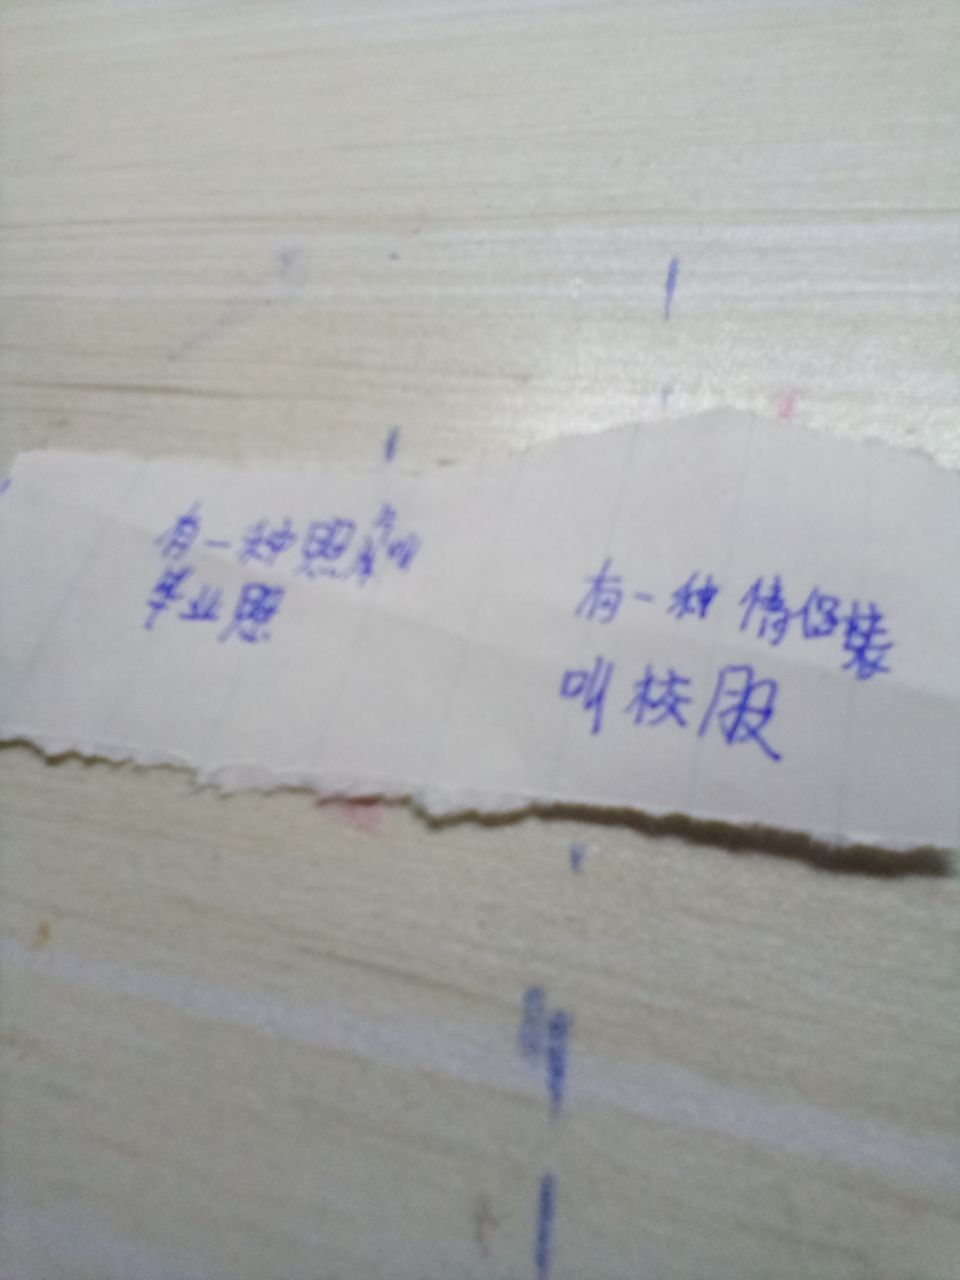 有一种照片叫
毕业照
有一种情侣装
叫校服